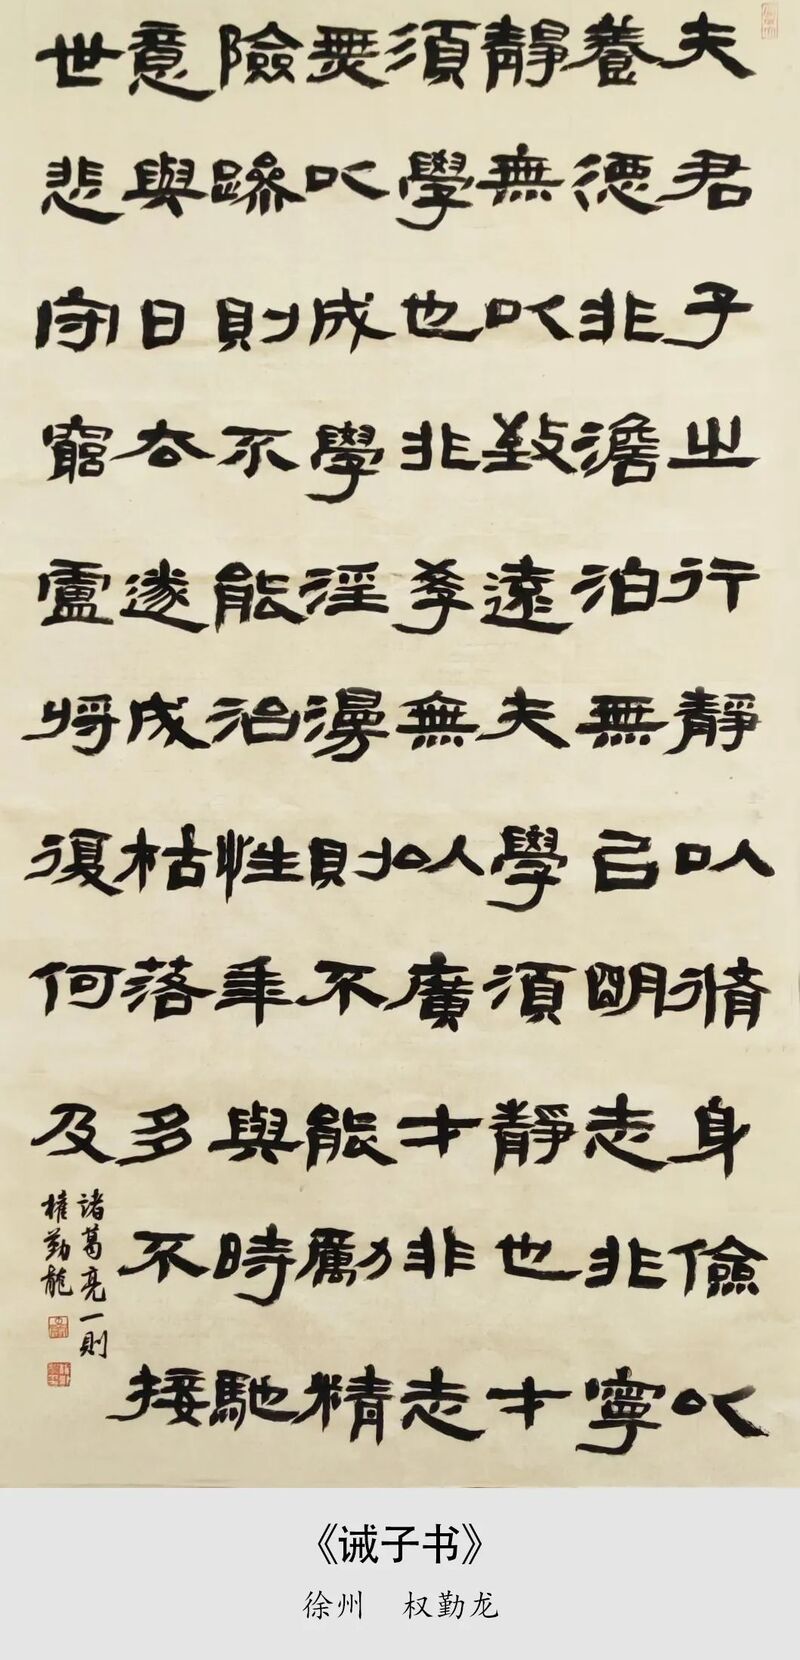 夫君子之行靜以脩身儉以
養德非澹泊無㠯明志非寧
靜無以致遠夫學須靜也才
須學也非斈無以廣才非志
無以成學淫漫則不能勵精
險躁則不能治性年與時馳
意與日去遂成枯落多不接
世悲守窮廬將復何及
諸葛亮一則
權勤龍
《诫子书》
徐州 权勤龙